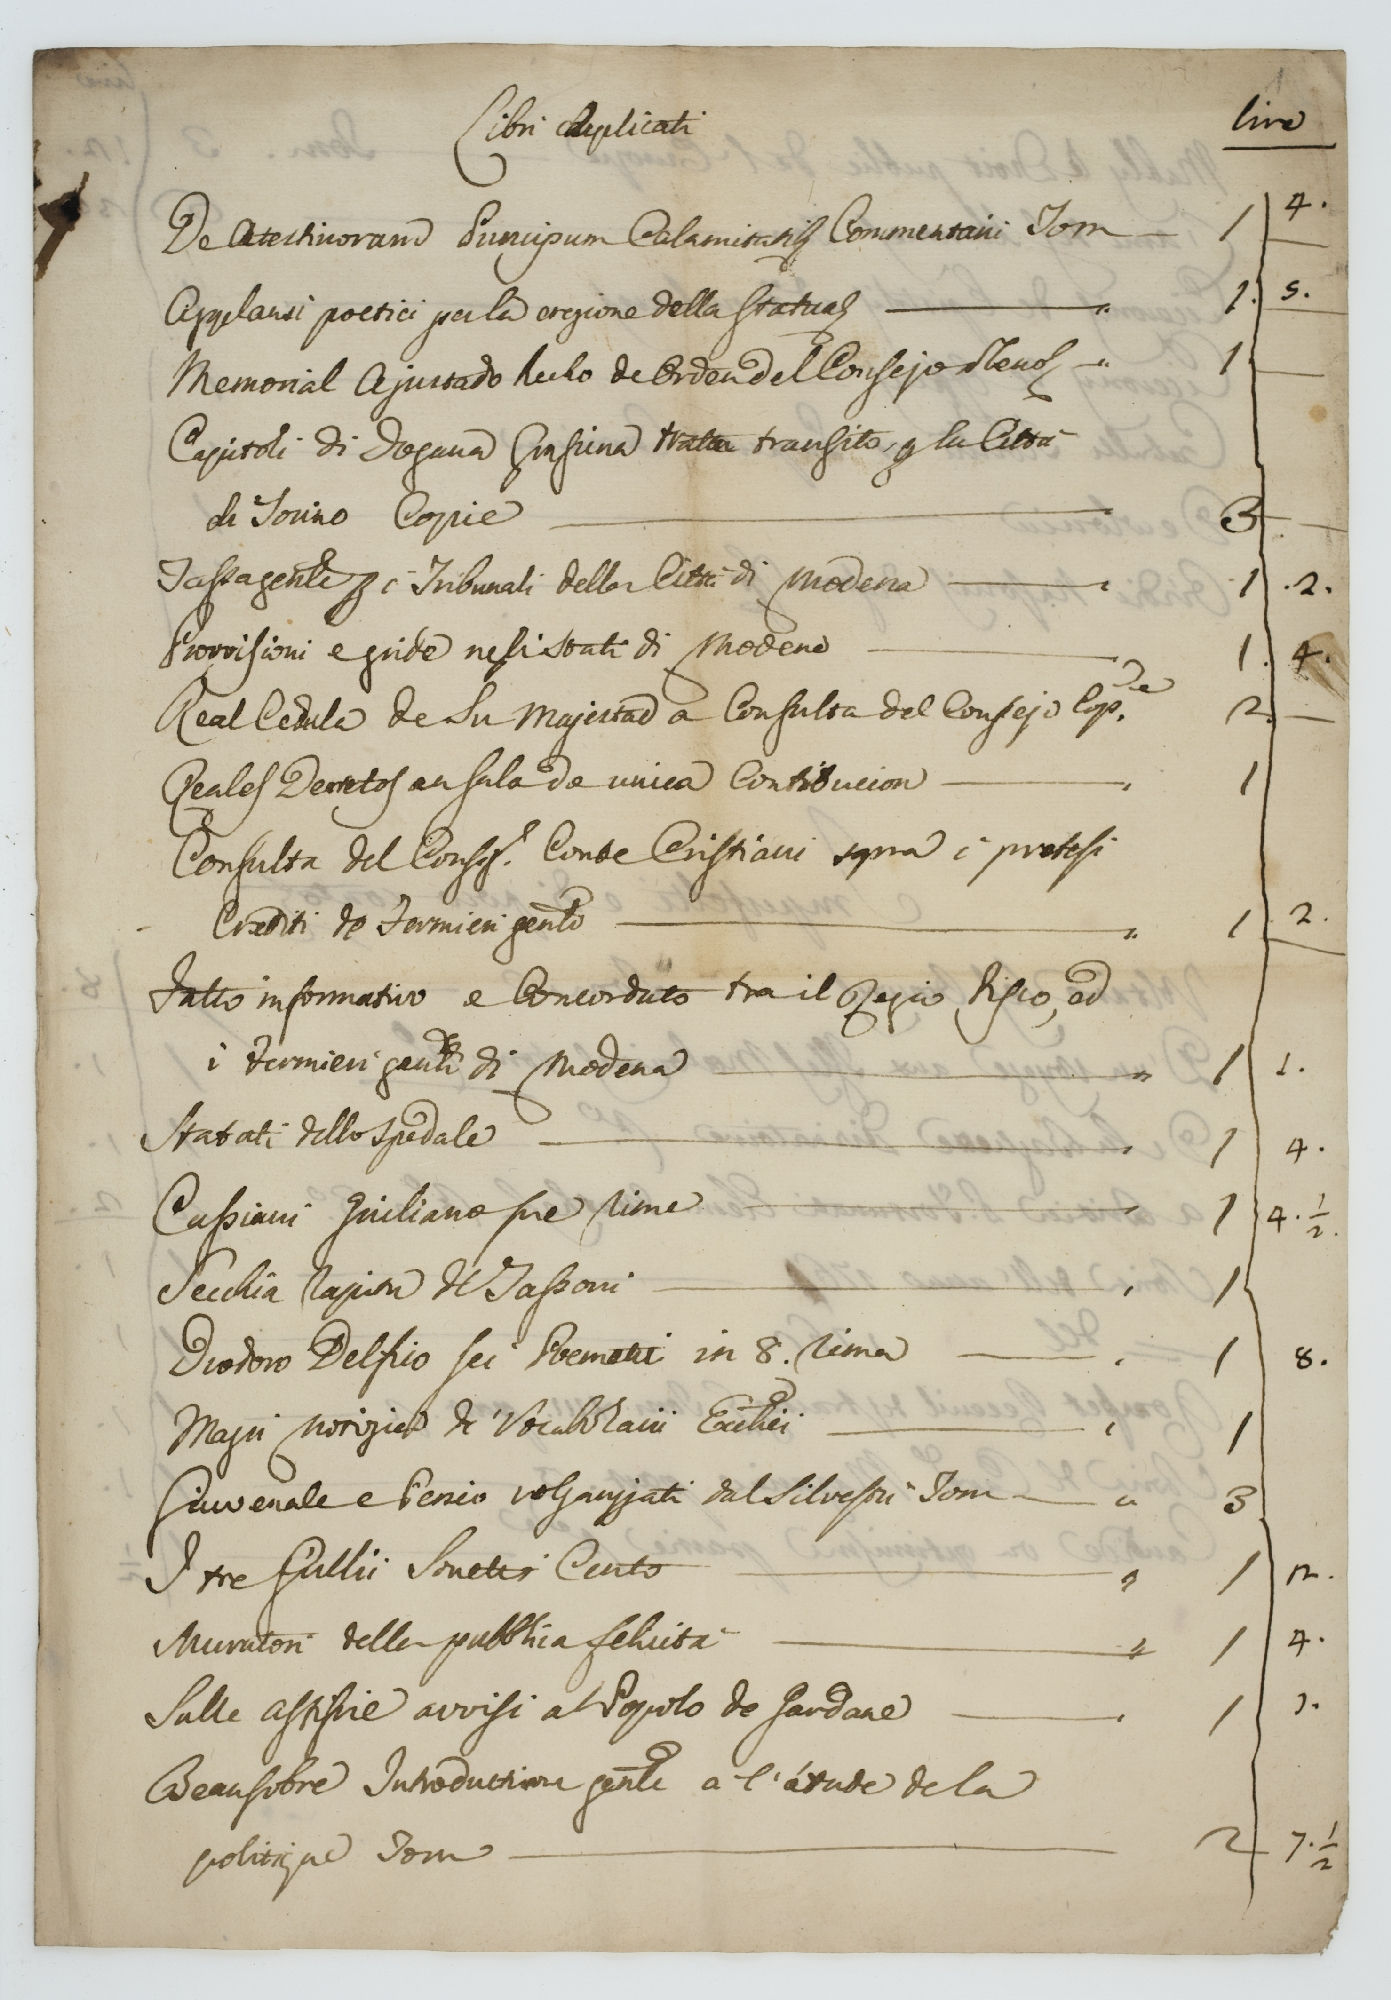 Libri duplicati lire
De Atestinorum Principum Calamitatis Commentarii Tom 1 4.
Applausi poetici per la erezione della Statua 1. 5.
Memorial Ajustado hecho de Orden del Consejo Pleno 1.
Capitoli di Dogana tratta transito, la Città
di Torino Copie 3
Tassa genle p i Tribunali della Città di Modena 1 .2.
Provvisioni e gride nesistati di Modena 1. 4.
Real Cedula de Su Majestad a Consulta del Consejo Cop.e 2.
Reales Decretos en sala de unica Contribucion 1
Consulta del Consig.r Conte Cristiani sopra i pretesi
Crediti de Fermieri genli 1 2.
Fatto informativo e Concordato tra il Regio Fisco, ed
i Fermieri genli di Modena 1 1.
Statuti dello Spedale 1 4.
Cassiani Giuliano sue rime 1 4. 1/2.
Secchia rapita de Tassoni 1
Diodoro Delfico sei Poemetti in 8. rima 1 8.
Magri notizie de' Vocabolarii Eccl'ci 1
Giuvenale e Persio volgarizzati dal Silvestri Tom 3
I tre Giulii Sonetti Cento 1 12.
Muratori della pubblica felicità 1 4.
Sulle asfissie avvisi al Popolo de Gardane 1
Beausobre Introduction genle a l'étude de la
politique Tom 2 7. 1/2